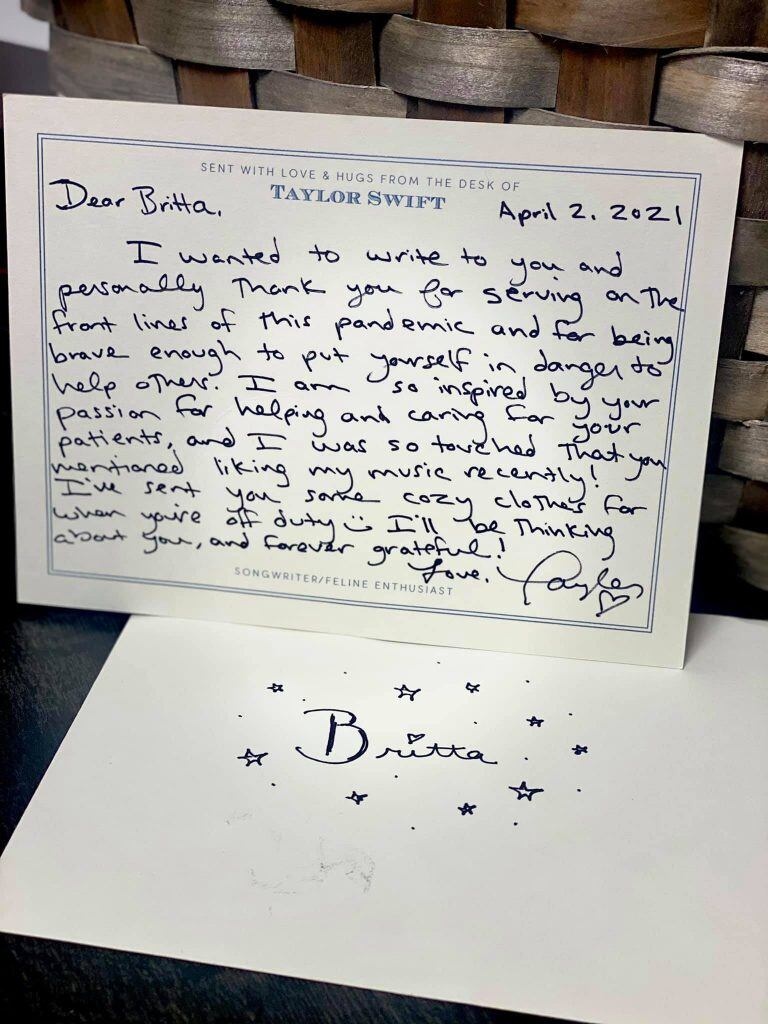 SENT WITH LOVE & HUGS FROM THE DESK OF
TAYLOR SWIFT
Dear Britta,
April 2. 2021
I wanted to write to you and
personally thank you for serving on the
front lines of this pandemic and for being
brave enough to put yourself in danger to
help others. I am so inspired by your
passion for helping and caring for your
patients, and I was so touched that you
mentioned liking my music recently!
I've sent you some cozy clothes for
when you're off duty I'll be thinking
about you, and forever grateful!
Love,
Taylor
SONGWRITER/FELINE ENTHUSIAST
Britta